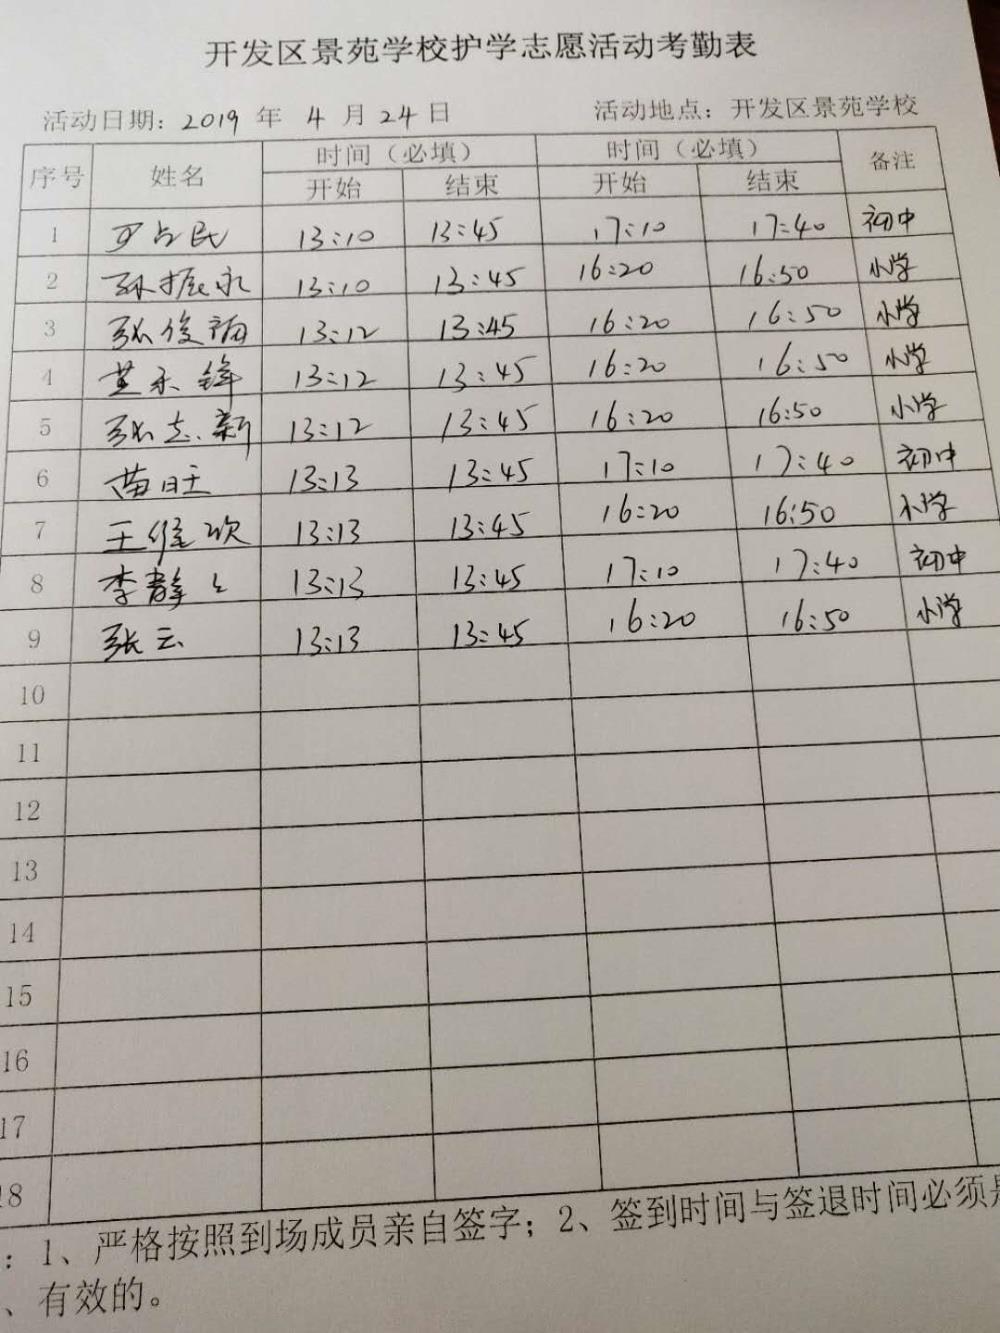 开发区景苑学校护学志愿活动考勤表
活动日期：2019 年 4 月 24 日 活动地点：开发区景苑学校
序号 姓名 时间（必填） 时间（必填） 备注
开始 结束 开始 结束
1 占民 13:10 13:45 17:10 17:40 初中
2 孙振永 13:10 13:45 16:20 16:50 小学
3 张俊 13:12 13:45 16:20 16:50 小学
4 黄永锋 13:12 13:45 16:20 16:50 小学
5 张志新 13:12 13:45 16:20 16:50 小学
6 苗旺 13:13 13:45 17:10 17:40 初中
7 王维欢 13:13 13:45 16:20 16:50 小学
8 李静 13:13 13:45 17:10 17:40 初中
9 张云 13:13 13:45 16:20 16:50 小学
10
11
12
13
14
15
16
17
18
：1、严格按照到场成员亲自签字；2、签到时间与签退时间必须
、有效的。